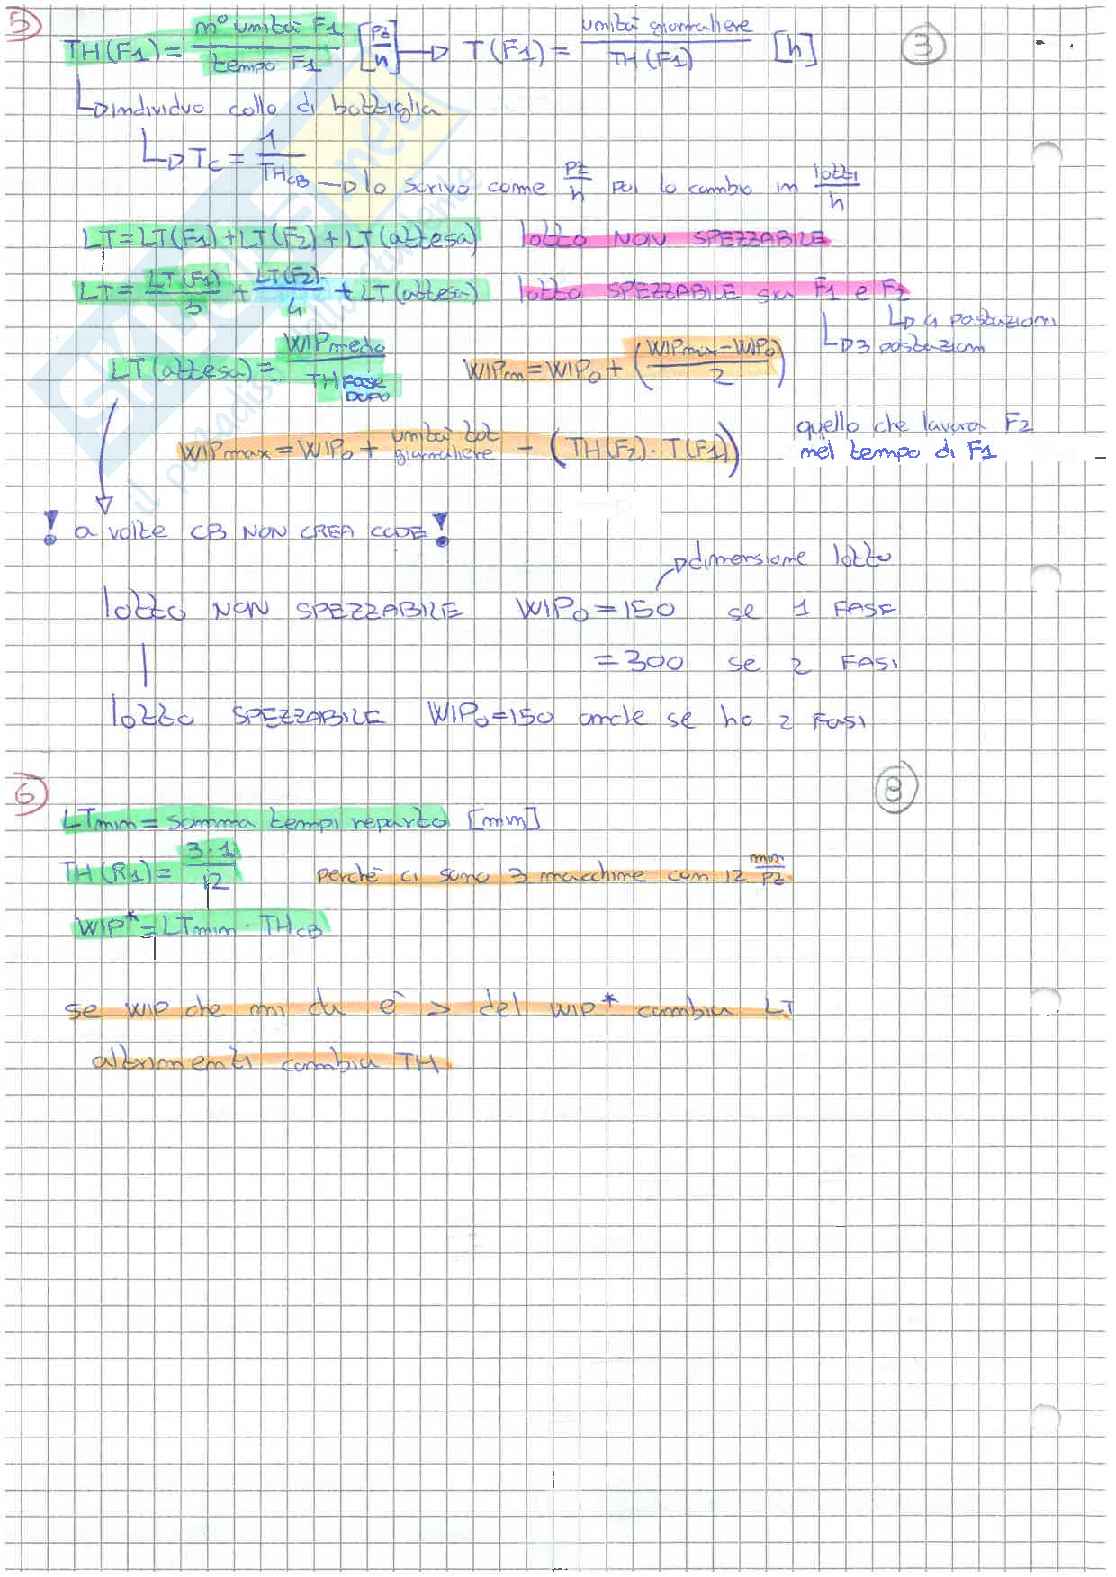 5
TH(F1) = n° unità F1 / tempo F1 [pz/h] → T(F1) = unità giornaliere / TH(F1) [h] 3
↳ individuo collo di bottiglia
↳ Tc = 1 / TH_CB → lo scrivo come pz/h poi lo cambio in lotti/h
LT = LT(F1) + LT(F2) + LT(attesa) lotto NON SPEZZABILE
LT = LT(F1)/3 + LT(F2)/4 + LT(attesa) lotto SPEZZABILE su F1 e F2
↳ 4 postazioni
↳ 3 postazioni
LT(attesa) = WIPmedio / TH FASE DOPO WIPm = WIP0 + (WIPmax - WIP0 / 2)
WIPmax = WIP0 + unità tot giornaliere - (TH(F2) · T(F1)) quello che lavora F2
nel tempo di F1
! a volte CB NON CREA CODE !
→ dimensione lotto
lotto NON SPEZZABILE WIP0 = 150 se 1 FASE
= 300 se 2 FASI
lotto SPEZZABILE WIP0 = 150 anche se ho 2 FASI
6 8
LTmin = somma tempi reparto [min]
TH(R1) = 3·1 / 12 perchè ci sono 3 macchine con 12 min/pz
WIP* = LTmin · TH_CB
se WIP che mi da è > del WIP* cambia LT
altrimenti cambia TH
SKUOLA.net
il paradiso dello studente